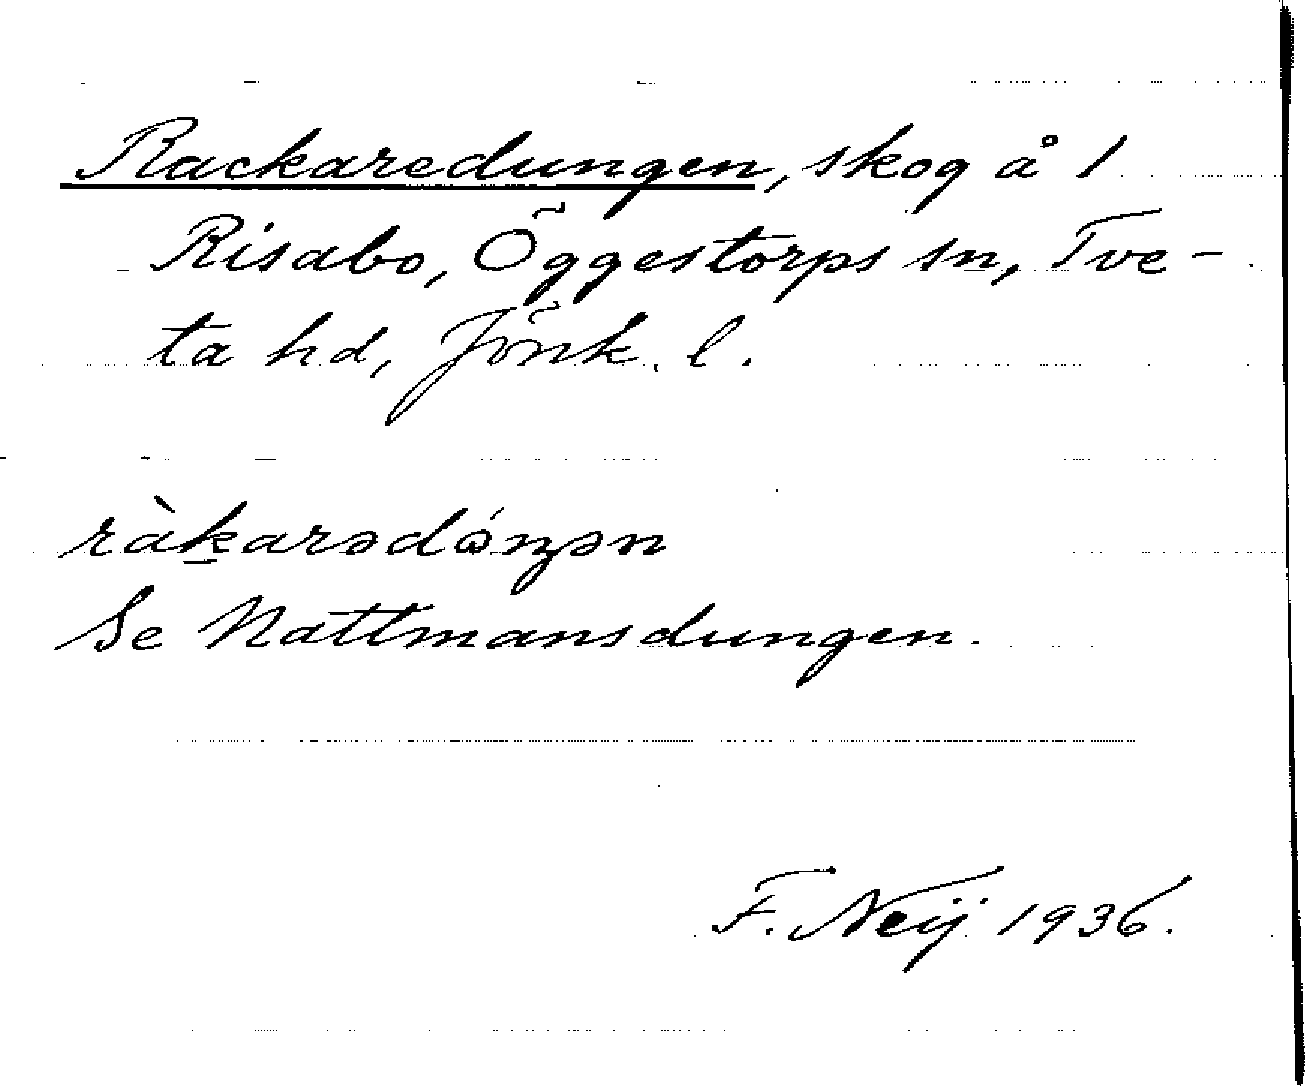 Rackaredungen, skog å 1
Risabo, Öggestorps sn, Tve-
ta hd, Jönk. l.
ràk̲arədǿŋən
Se Nattmansdungen.
F. Neij 1936.